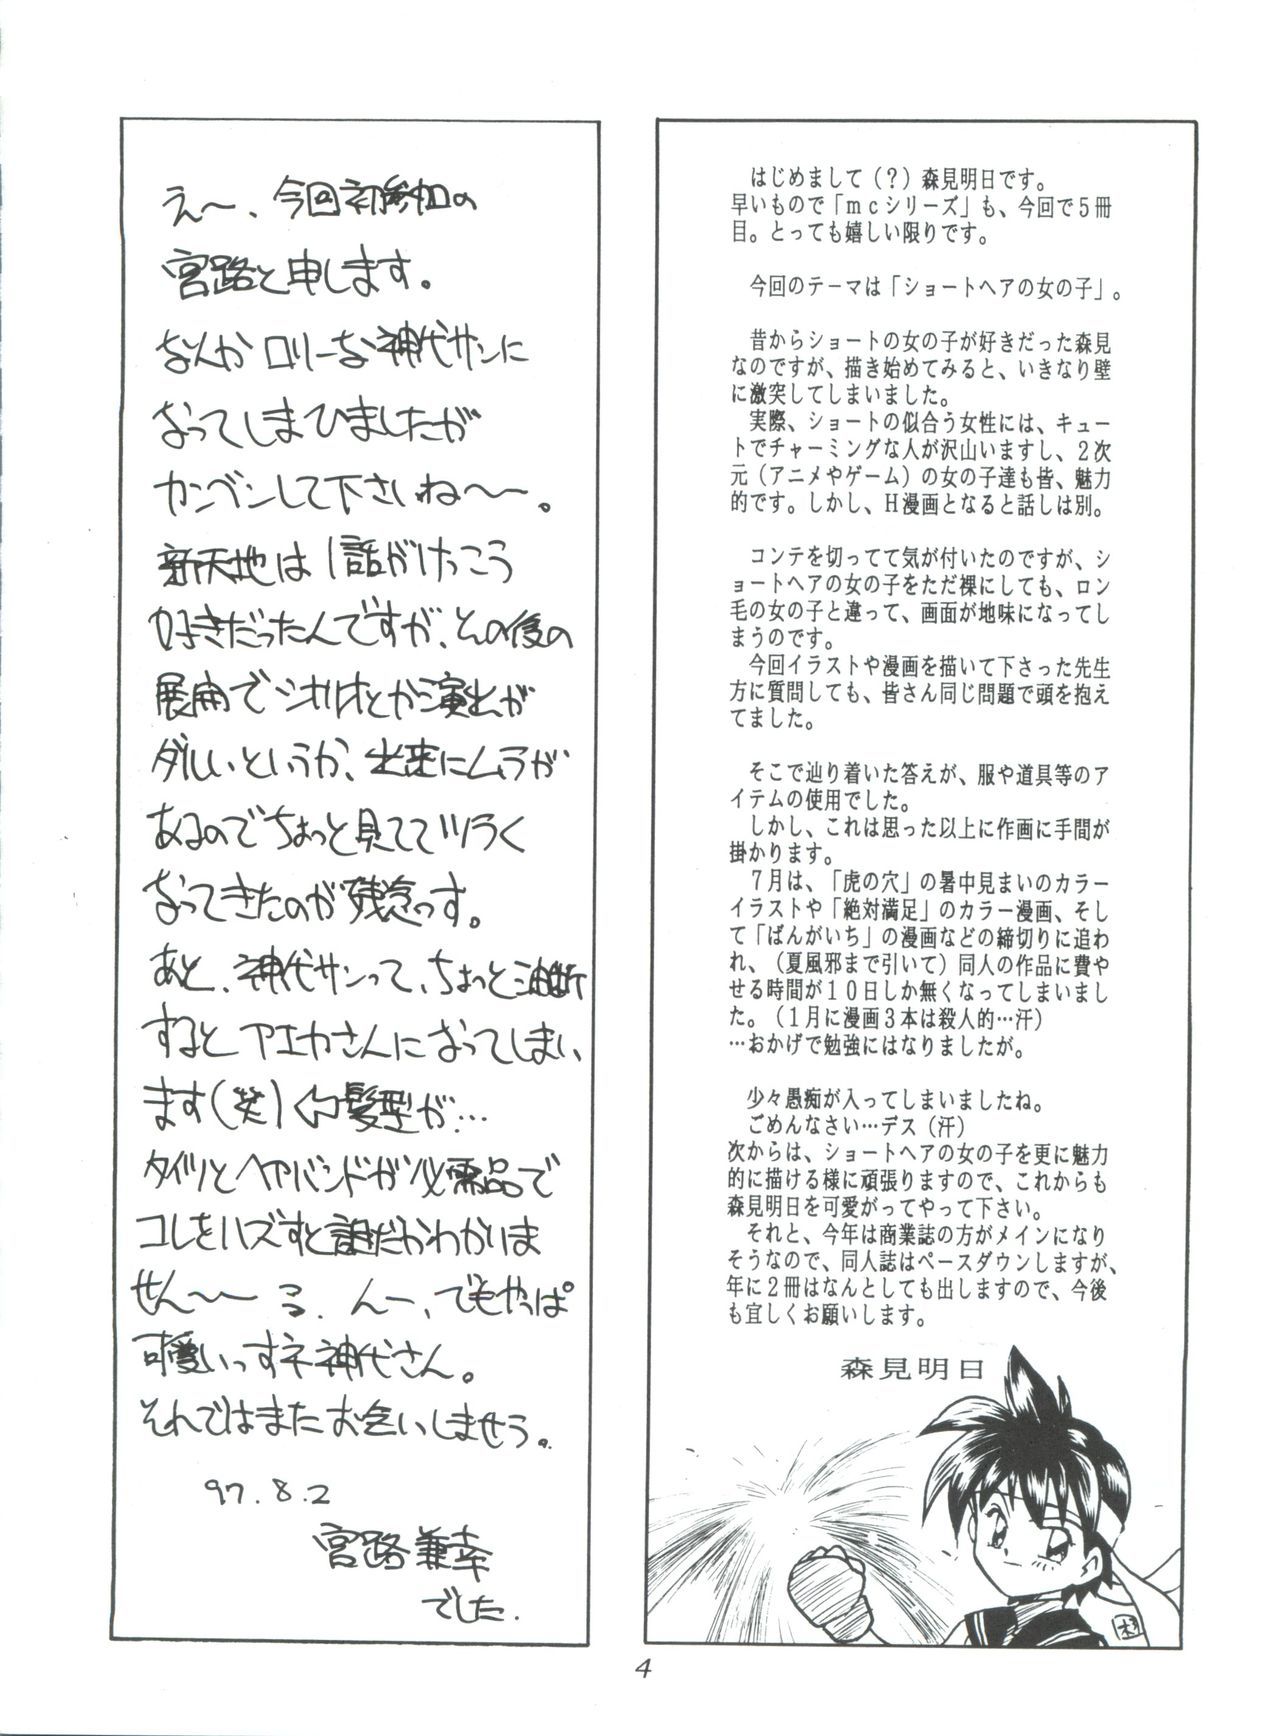 はじめまして（？）森見明日です。
早いもので「ｍｃシリーズ」も、今回で５冊
目。とっても嬉しい限りです。
今回のテーマは「ショートヘアの女の子」。
昔からショートの女の子が好きだった森見
なのですが、描き始めてみると、いきなり壁
に激突してしまいました。
実際、ショートの似合う女性には、キュー
トでチャーミングな人が沢山いますし、２次
元（アニメやゲーム）の女の子達も皆、魅力
的です。しかし、Ｈ漫画となると話しは別。
コンテを切ってて気が付いたのですが、シ
ョートヘアの女の子をただ裸にしても、ロン
毛の女の子と違って、画面が地味になってし
まうのです。
今回イラストや漫画を描いて下さった先生
方に質問しても、皆さん同じ問題で頭を抱え
てました。
そこで辿り着いた答えが、服や道具等のア
イテムの使用でした。
しかし、これは思った以上に作画に手間が
掛かります。
７月は、「虎の穴」の暑中見まいのカラー
イラストや「絶対満足」のカラー漫画、そし
て「ばんがいち」の漫画などの締切りに追わ
れ、（夏風邪まで引いて）同人の作品に費や
せる時間が１０日しか無くなってしまいまし
た。（１月に漫画３本は殺人的…汗）
…おかげで勉強にはなりましたが。
少々愚痴が入ってしまいましたね。
ごめんなさい…デス（汗）
次からは、ショートヘアの女の子を更に魅力
的に描ける様に頑張りますので、これからも
森見明日を可愛がってやって下さい。
それと、今年は商業誌の方がメインになり
そうなので、同人誌はペースダウンしますが、
年に２冊はなんとしても出しますので、今後
も宜しくお願いします。
森見明日
え〜、今回初参加の
宮路と申します。
なんかロリーな神代サンに
なってしまひましたが
カンベンして下さいね〜〜。
新天地は１話がけっこう
好きだったんですが、その後の
展開でシオリとか演出が
ダルいというか、出来にムラが
あるのでちょっと見ててツラく
なってきたのが残念っす。
あと、神代サンって、ちょっと油断
するとアエカさんになってしまい
ます（笑）⇦髪型が…
タイツとヘアバンドが必需品で
コレをハズすと誰だかわかりま
せん〜〜 んー、でもやっぱ
可愛いっすネ神代さん。
それではまたお会いしませう。
97.8.2
宮路兼幸
でした.
4